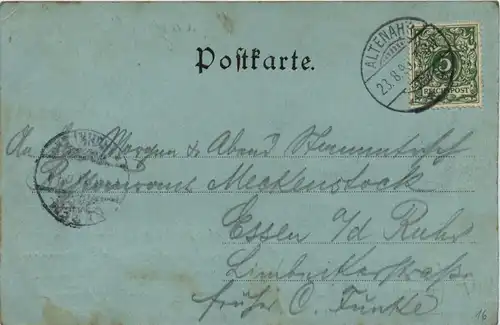 Postkarte.
ALTENAHR
23.8.9
REICHSPOST
5
An Morgen & Abend Stammtisch
Restaurant Mecklenstock
Essen a/d Ruhr
Limbeckerstraße
früher C. Funke
16